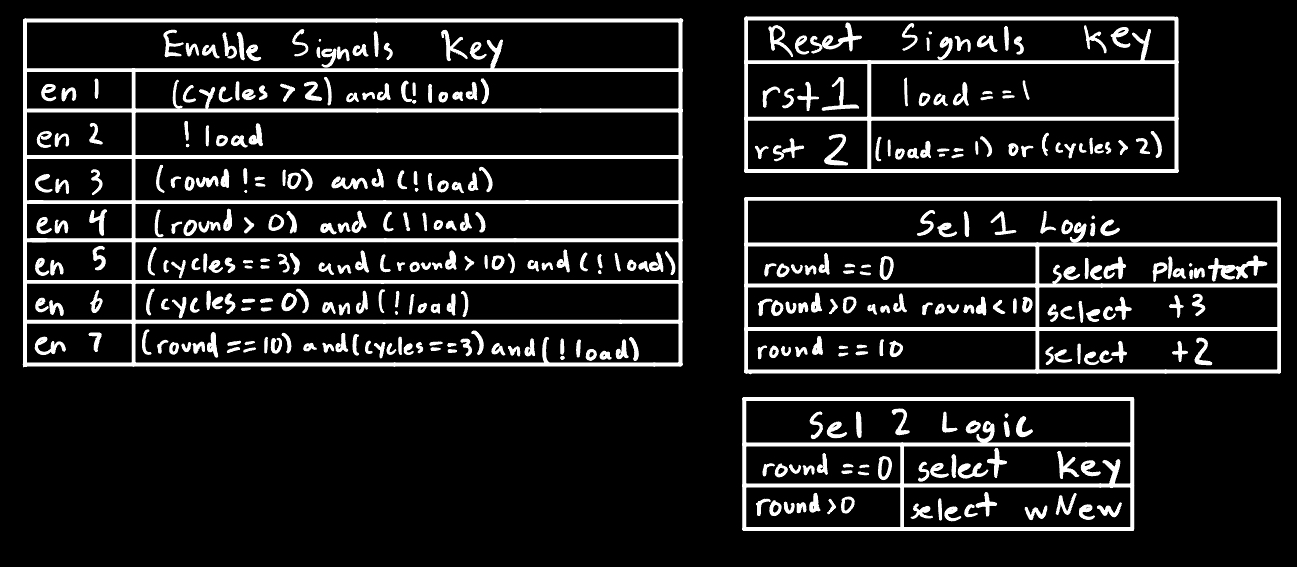 Enable Signals Key
en 1 (cycles > 2) and (! load)
en 2 ! load
en 3 (round != 10) and (!load)
en 4 (round > 0) and (! load)
en 5 (cycles == 3) and (round > 10) and (! load)
en 6 (cycles == 0) and (! load)
en 7 (round == 10) and (cycles == 3) and (! load)
Reset Signals Key
rst 1 load == 1
rst 2 (load == 1) or (cycles > 2)
Sel 1 Logic
round == 0 select Plaintext
round > 0 and round < 10 select t3
round == 10 select t2
Sel 2 Logic
round == 0 select Key
round > 0 select wNew